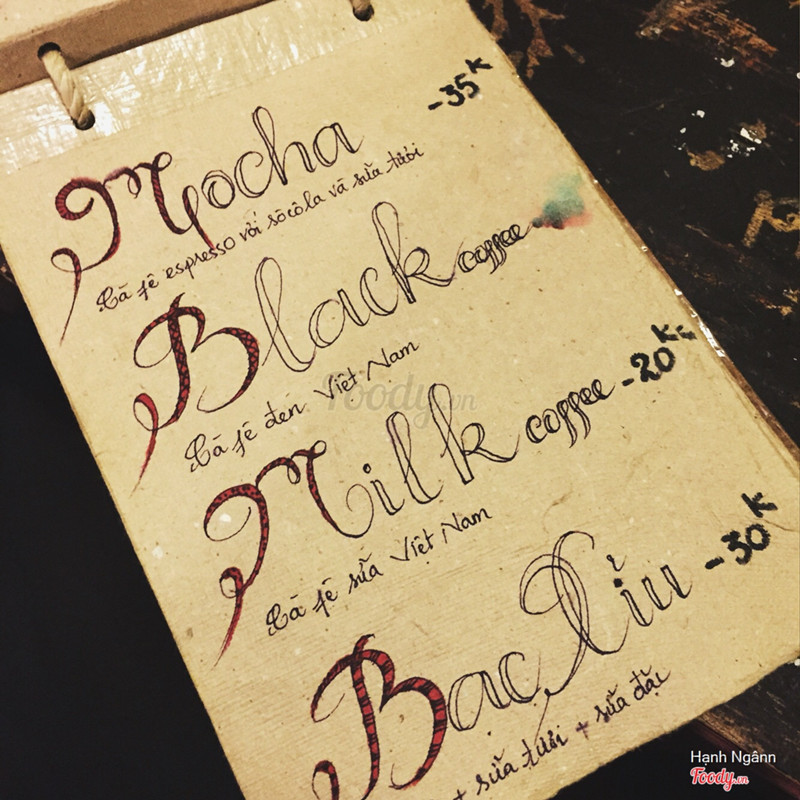 Mocha -35K
Cà fê espresso với sôcôla và sữa tươi
Black coffee
Cà fê đen Việt Nam
Milk coffee -20K
Cà fê sữa Việt Nam
Bạc Xỉu -30K
+ sữa tươi + sữa đặc
Foody.vn
Hạnh Ngânn
Foody.vn